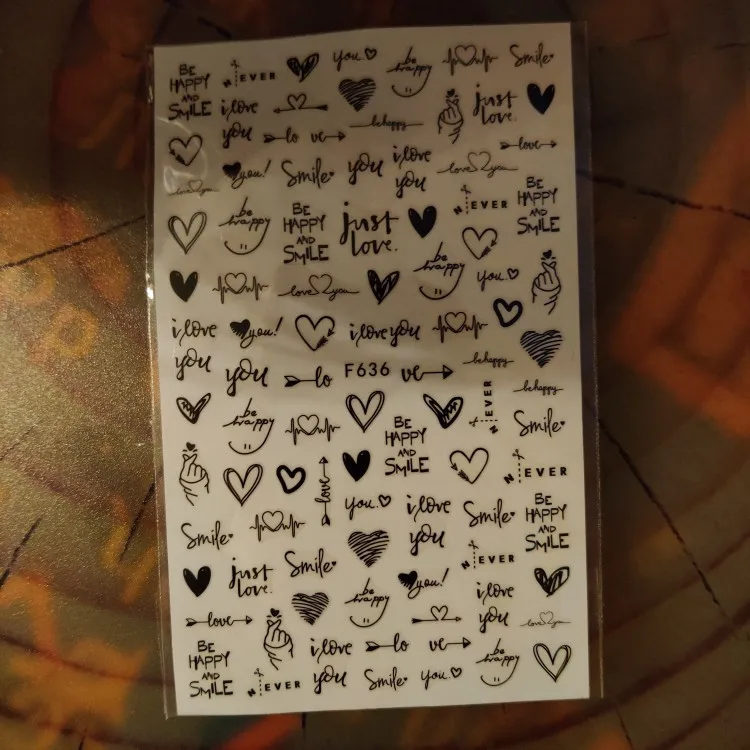 BE HAPPY AND SMILE
N EVER
you
be happy
Smile
i love you
just love.
lo ve
be happy
love
love you
you!
Smile
you
i love you
love you
be happy
BE HAPPY AND SMILE
just love.
N EVER
BE HAPPY AND SMILE
love you
be happy
you
i love you
you!
i love you
be happy
you
lo
F636
ve
be happy
be happy
BE HAPPY AND SMILE
N EVER
Smile
love
you
i love you
Smile
N EVER
BE HAPPY AND SMILE
Smile
just love.
Smile
be happy
you!
N EVER
i love you
love
love you
BE HAPPY AND SMILE
N EVER
i love you
lo ve
Smile
you
be happy